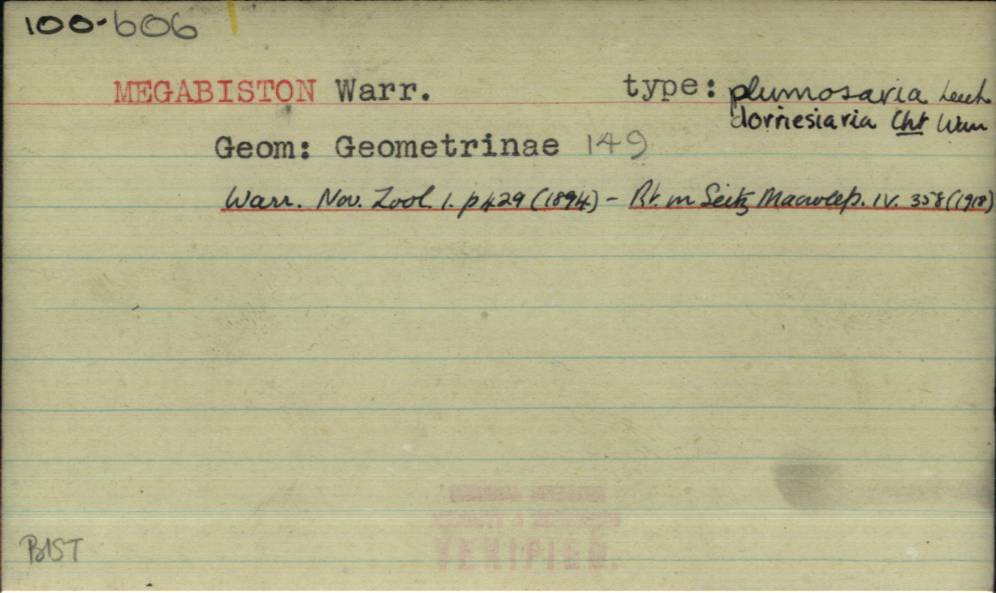 100·606
MEGABISTON Warr. type: plumosaria Leech
Geom: Geometrinae 149
Warr. Nov. Zool. 1. p 429 (1894) - Rt. in Seitz Macrolep. IV. 358 (1918)
VERIFIED.
BIST